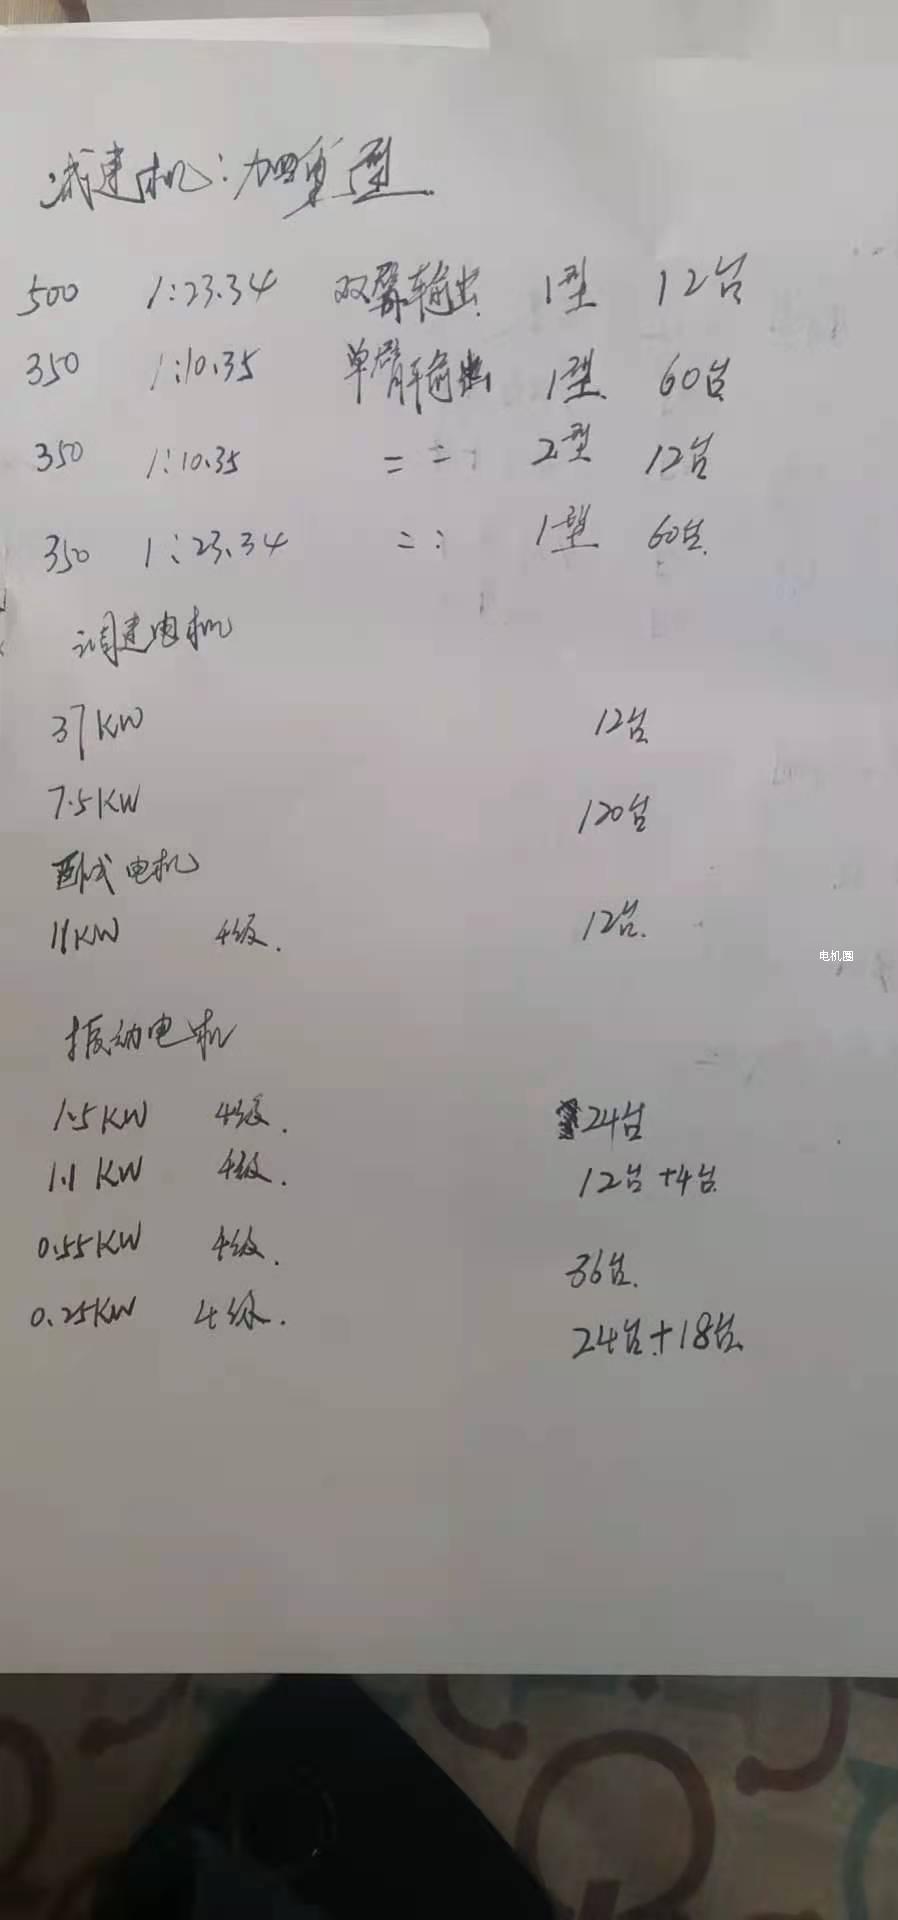 减速机:加重型
500 1:23.34 双臂输出 1型 12台
350 1:10.35 单臂输出 1型 60台
350 1:10.35 = = 2型 12台
350 1:23.34 = : 1型 60台
调速电机
37KW 12台
7.5KW 120台
卧式电机
11KW 4级. 12台.
电机圈
振动电机
1.5KW 4级. 24台
1.1KW 4级. 12台+4台
0.55KW 4级. 36台.
0.25KW 4级. 24台+18台